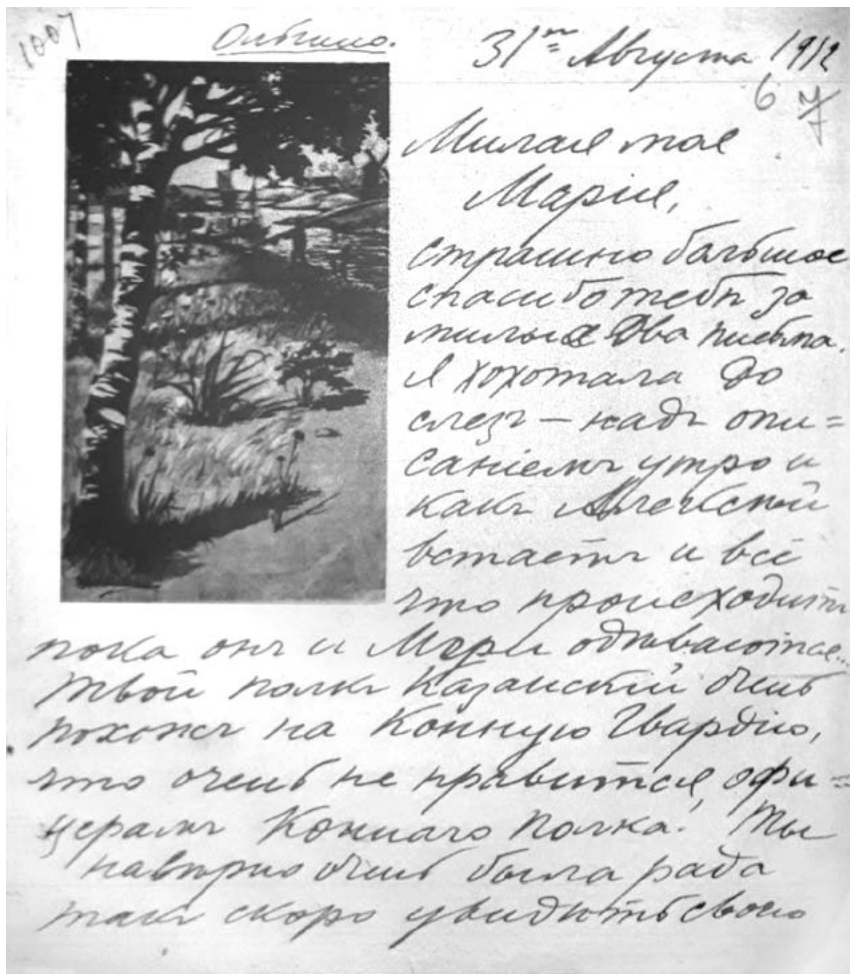 1007
Ольгино.
31го Августа 1912
6 7
Милая моя
Марія,
страшно большое
спасибо тебѣ за
милыя два письма.
Я хохотала до
слезъ — надъ опи=
саніемъ утро и
какъ Алексѣй
встаетъ и всё
что происходитъ
пока онъ и Мэри одѣваются...
Твой полкъ Казанскій очень
похожъ на Конную Гвардію,
что очень не нравится офи=
церамъ Коннаго полка! Ты
навѣрно очень была рада
такъ скоро увидѣть свою